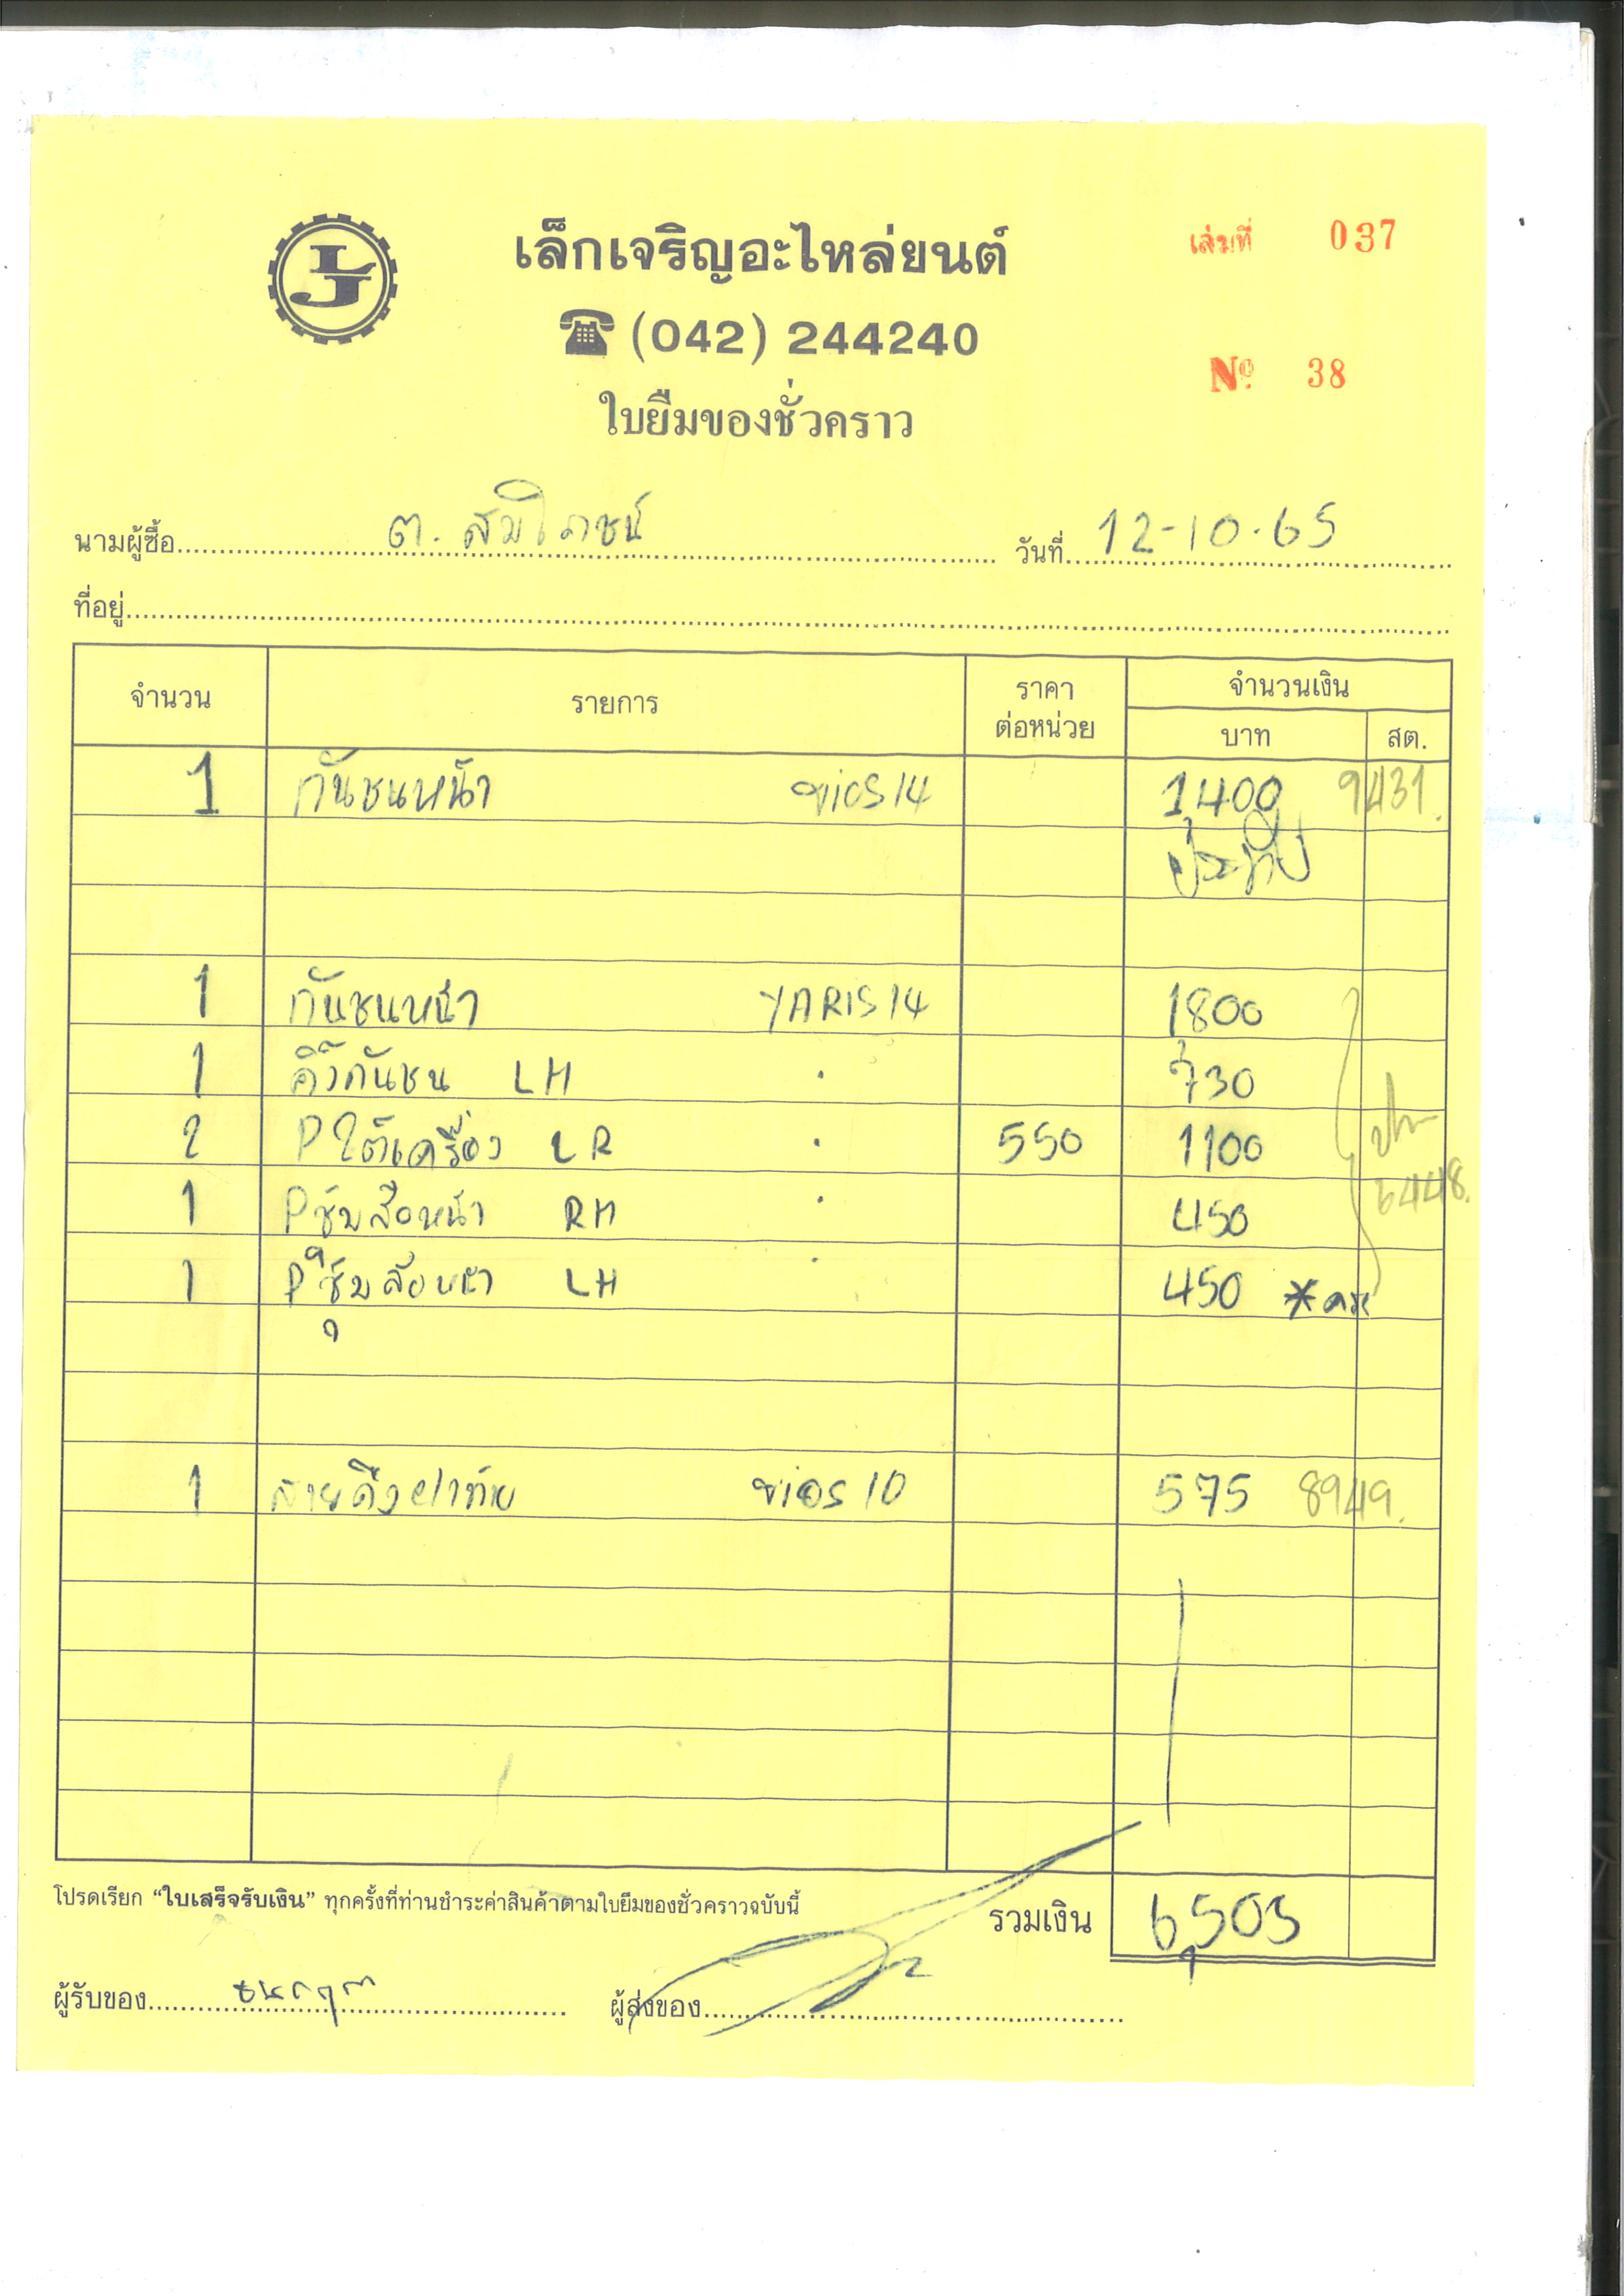 เล็กเจริญอะไหล่ยนต์
เล่มที่ 037
(042) 244240
№ 38
ใบยืมของชั่วคราว
นามผู้ซื้อ ต. สัมโภชน์ วันที่ 12-10-65
ที่อยู่
จำนวน รายการ ราคาต่อหน่วย จำนวนเงิน
บาท สต.
1 กันชนหน้า vios 14 1,400 9431.
1 กันชนหน้า YARIS 14 1,800
1 คิ้วกันชน LH " 730
2 P ใต้เครื่อง LR " 550 1100
1 P ซุ้มล้อหน้า RH " 450
6448.
1 P ซุ้มล้อหน้า LH " 450
1 สายดึงฝาท้าย vios 10 575 8949.
โปรดเรียก “ใบเสร็จรับเงิน” ทุกครั้งที่ท่านชำระค่าสินค้าตามใบยืมของชั่วคราวฉบับนี้
รวมเงิน 6,505
ผู้รับของ ผู้ส่งของ